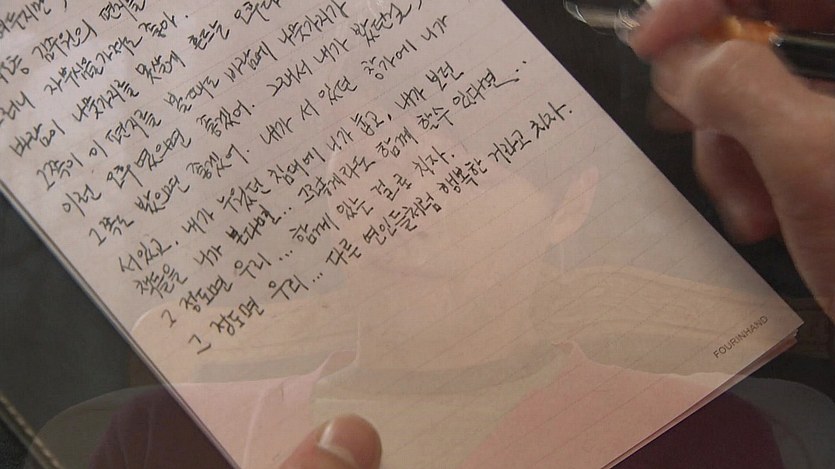 김주원의 편지를
자부심을 가져도 좋아.
바람이 나뭇가지를 못살게 흔드는 오후다
그쪽이 이 편지를 볼때도 바람에 나뭇가지가
이런 오후였으면 좋겠어. 그래서 내가 봤던걸,
그쪽도 봤으면 좋겠어. 내가 서 있던 창가에 니가
서있고, 내가 누웠던 침대에 니가 눕고, 내가 보던
책들을 니가 본다면... 그렇게라도 함께 할수 있다면..
그 정도면 우리... 함께 있는 걸로 치자.
그 정도면 우리... 다른 연인들처럼 행복한 거라고 치자.
FOURINHAND